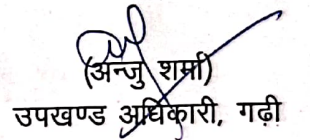 (अन्जु शर्मा)
उपखण्ड अधिकारी, गढ़ी